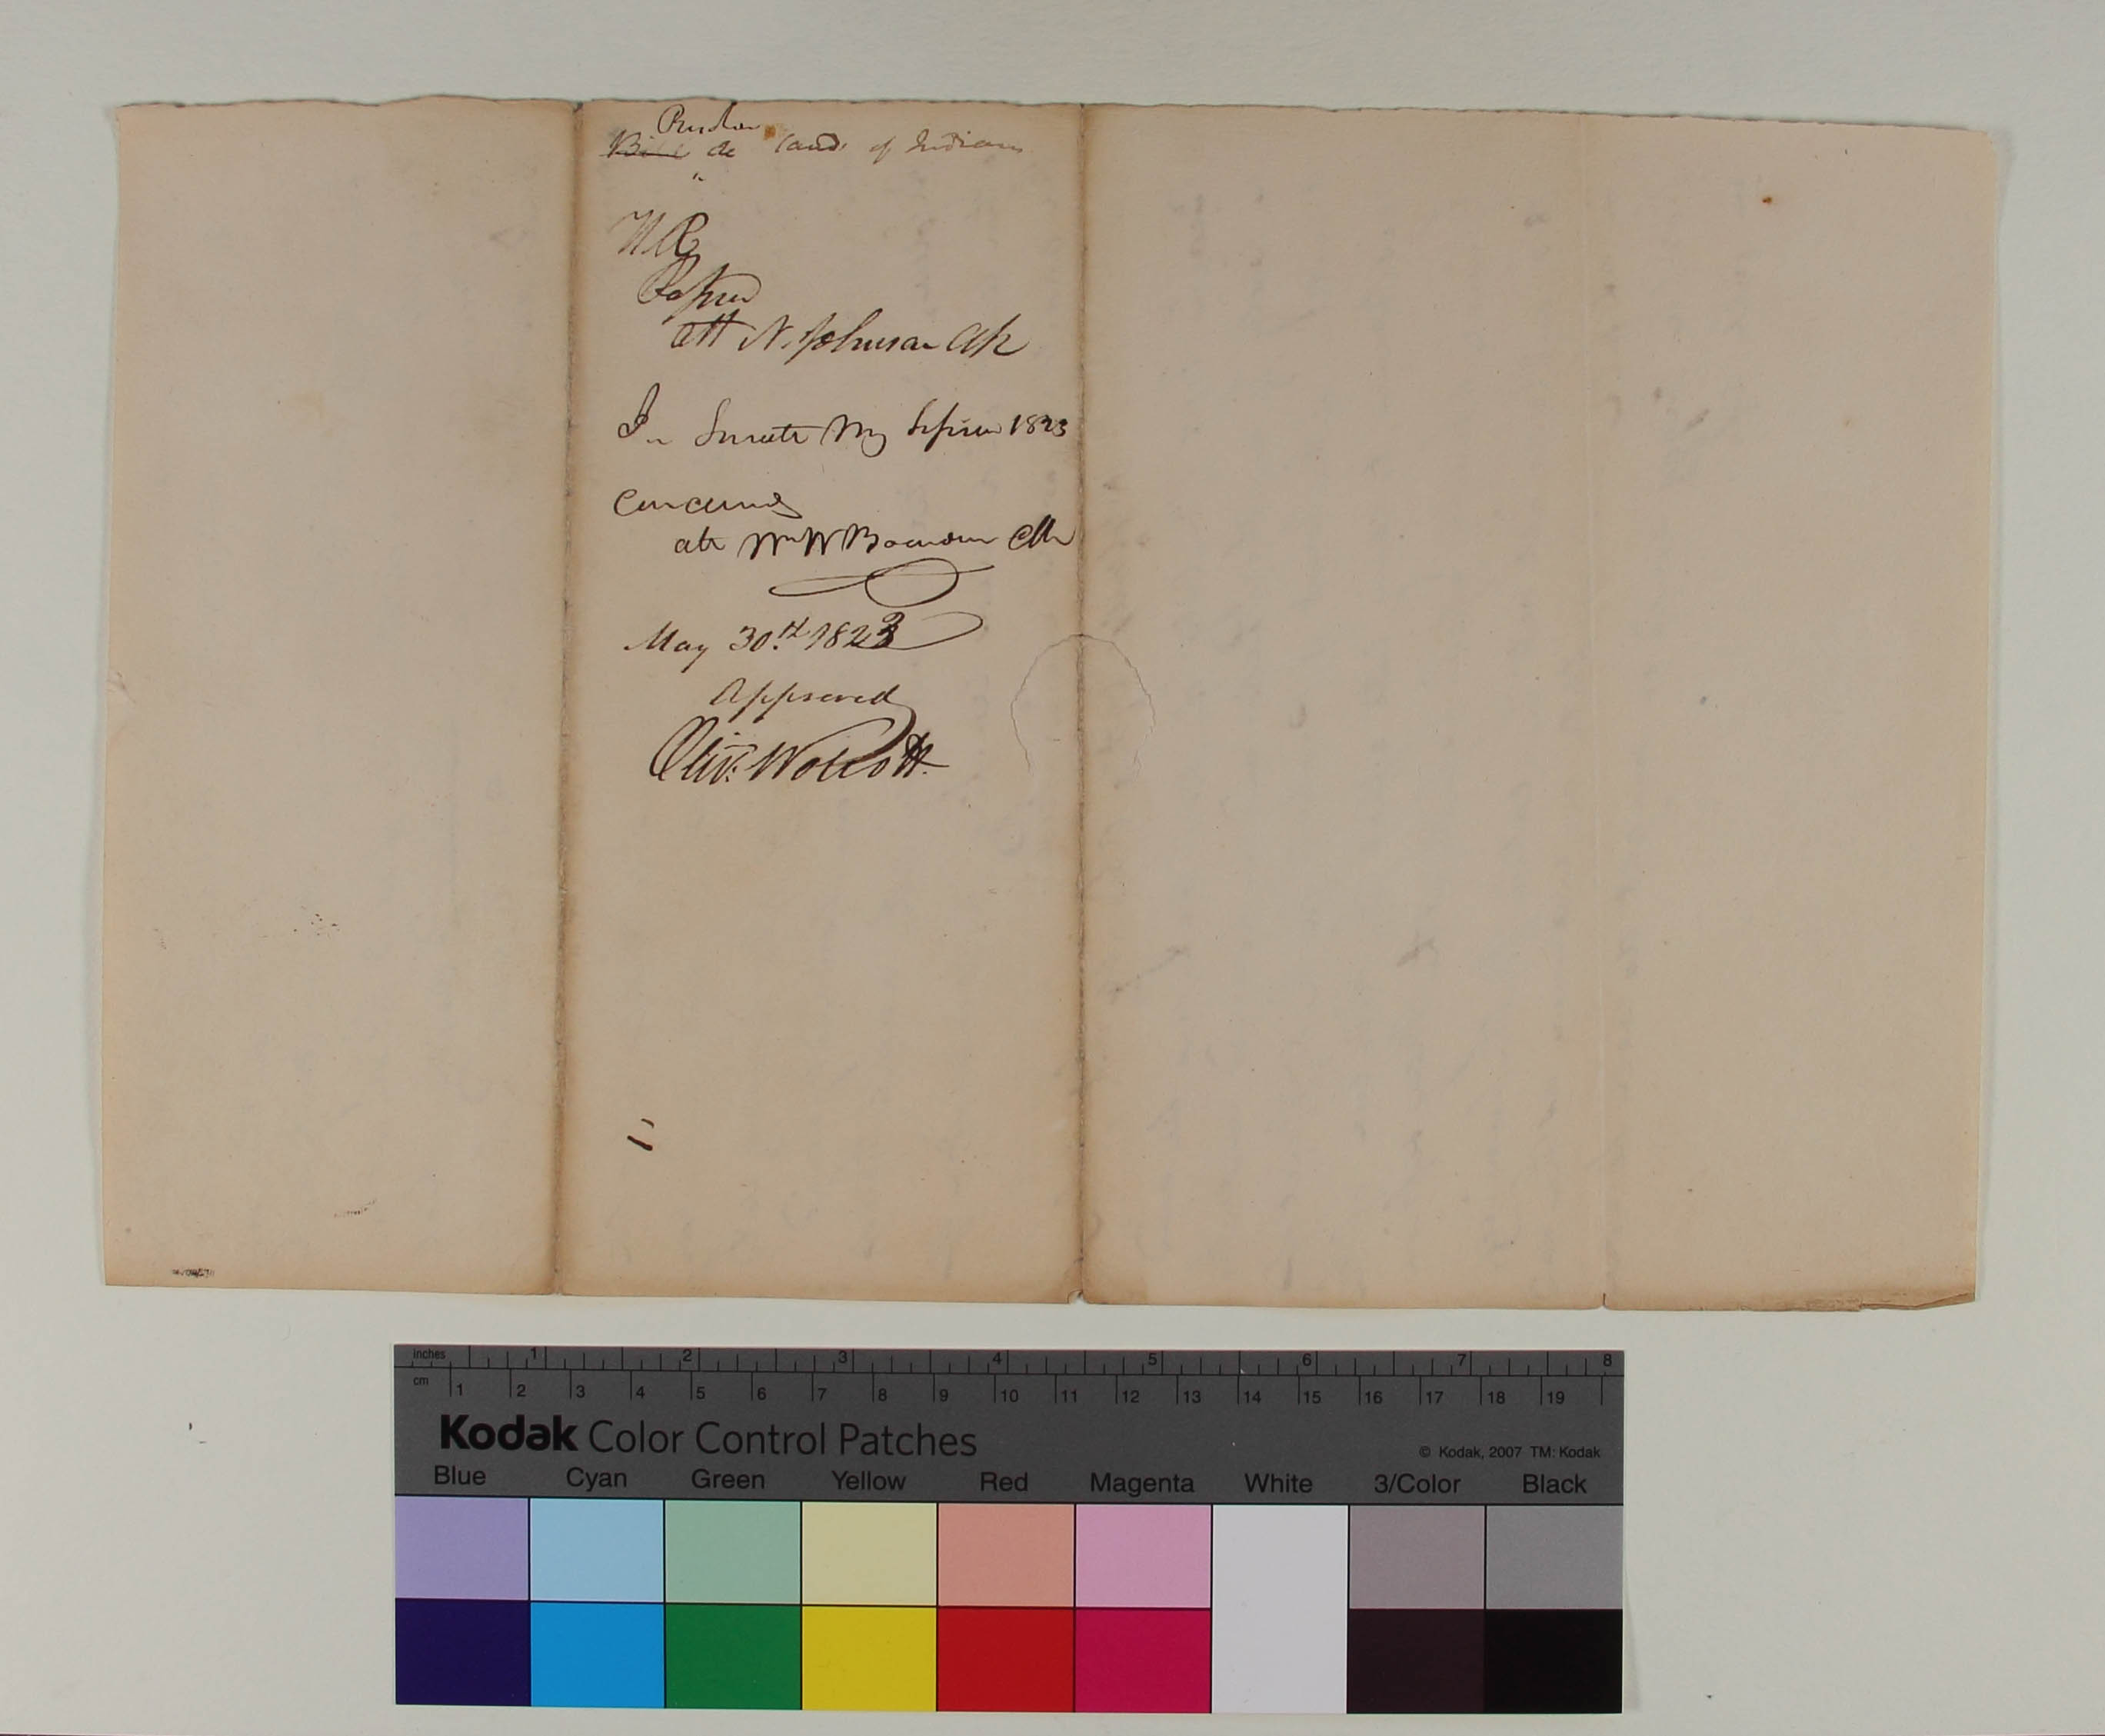 Bill de land of Indians
H R
Passed
att N. Johnson Clk
In Senate May Session 1823
Concurred
att Wm W Boardman Clk
May 30.th 1823
Approved
Oliv: Wolcott.
inches 1 2 3 4 5 6 7 8
cm 1 2 3 4 5 6 7 8 9 10 11 12 13 14 15 16 17 18 19
Kodak Color Control Patches
© Kodak, 2007 TM: Kodak
Blue Cyan Green Yellow Red Magenta White 3/Color Black